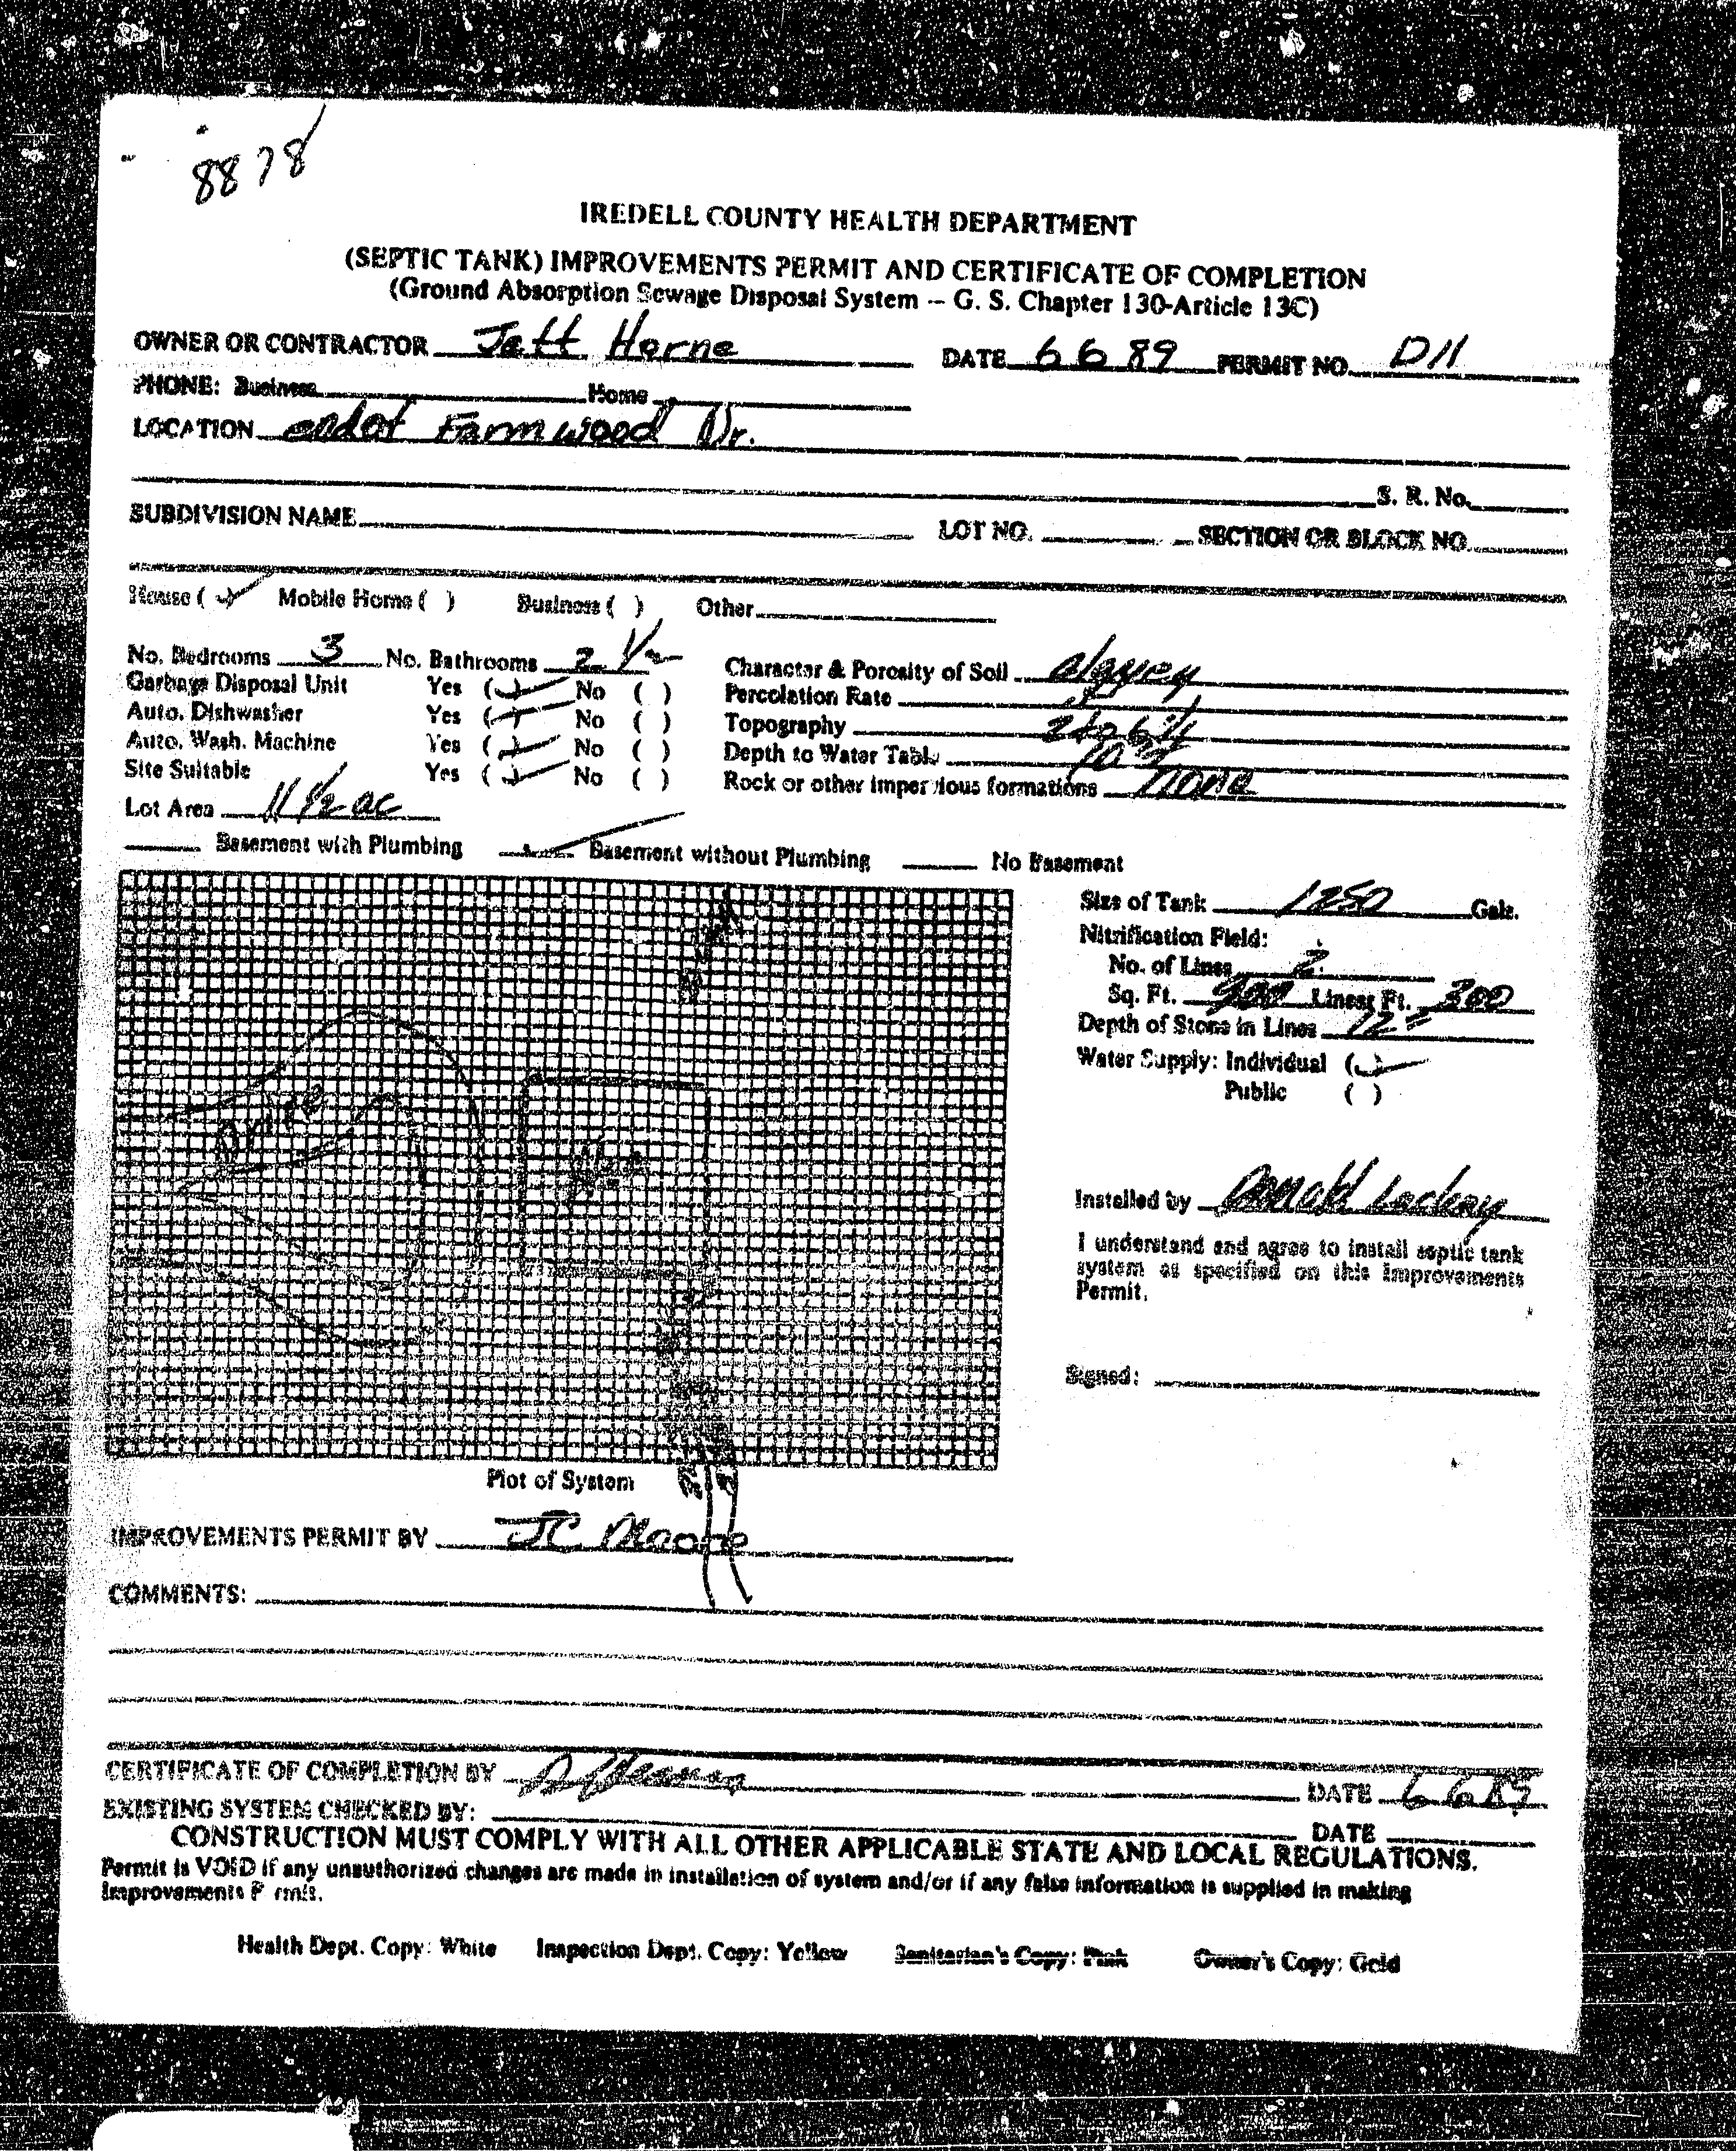 8878
IREDELL COUNTY HEALTH DEPARTMENT
(SEPTIC TANK) IMPROVEMENTS PERMIT AND CERTIFICATE OF COMPLETION
(Ground Absorption Sewage Disposal System -- G. S. Chapter 130-Article 13C)
OWNER OR CONTRACTOR Jeff Horne DATE 6 6 89 PERMIT NO. D11
PHONE: Business Home
LOCATION end of Farmwood Dr.
S. R. No.
SUBDIVISION NAME LOT NO. SECTION OR BLOCK NO.
House (✓) Mobile Home ( ) Business ( ) Other
No. Bedrooms 3 No. Bathrooms 2 1/2 Character & Porosity of Soil clayey
Garbage Disposal Unit Yes (✓) No ( ) Percolation Rate
Auto. Dishwasher Yes (✓) No ( ) Topography 2 to 6%
Auto. Wash. Machine Yes (✓) No ( ) Depth to Water Table
Site Suitable Yes (✓) No ( ) Rock or other impervious formations none
Lot Area 11 1/2 ac
Basement with Plumbing ✓ Basement without Plumbing No Basement
Size of Tank 1250 Gals.
Nitrification Field:
No. of Lines 2
Sq. Ft. 900 Linear Ft. 300
Depth of Stone in Lines 12"
Water Supply: Individual (✓)
Public ( )
Drive
Installed by Donald Lackey
I understand and agree to install septic tank
system as specified on this Improvements
Permit.
Signed:
Plot of System
IMPROVEMENTS PERMIT BY JC Moore
COMMENTS:
CERTIFICATE OF COMPLETION BY DATE 6 6 89
EXISTING SYSTEM CHECKED BY: DATE
CONSTRUCTION MUST COMPLY WITH ALL OTHER APPLICABLE STATE AND LOCAL REGULATIONS.
Permit is VOID if any unauthorized changes are made in installation of system and/or if any false information is supplied in making
Improvements P rmit.
Health Dept. Copy: White Inspection Dept. Copy: Yellow Sanitarian's Copy: Pink Owner's Copy: Gold